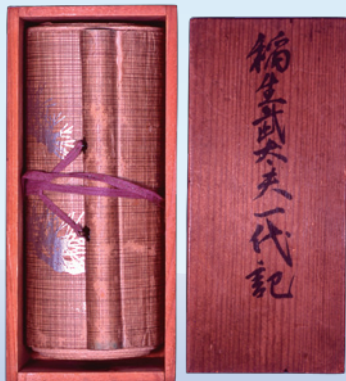 稲生武太夫一代記